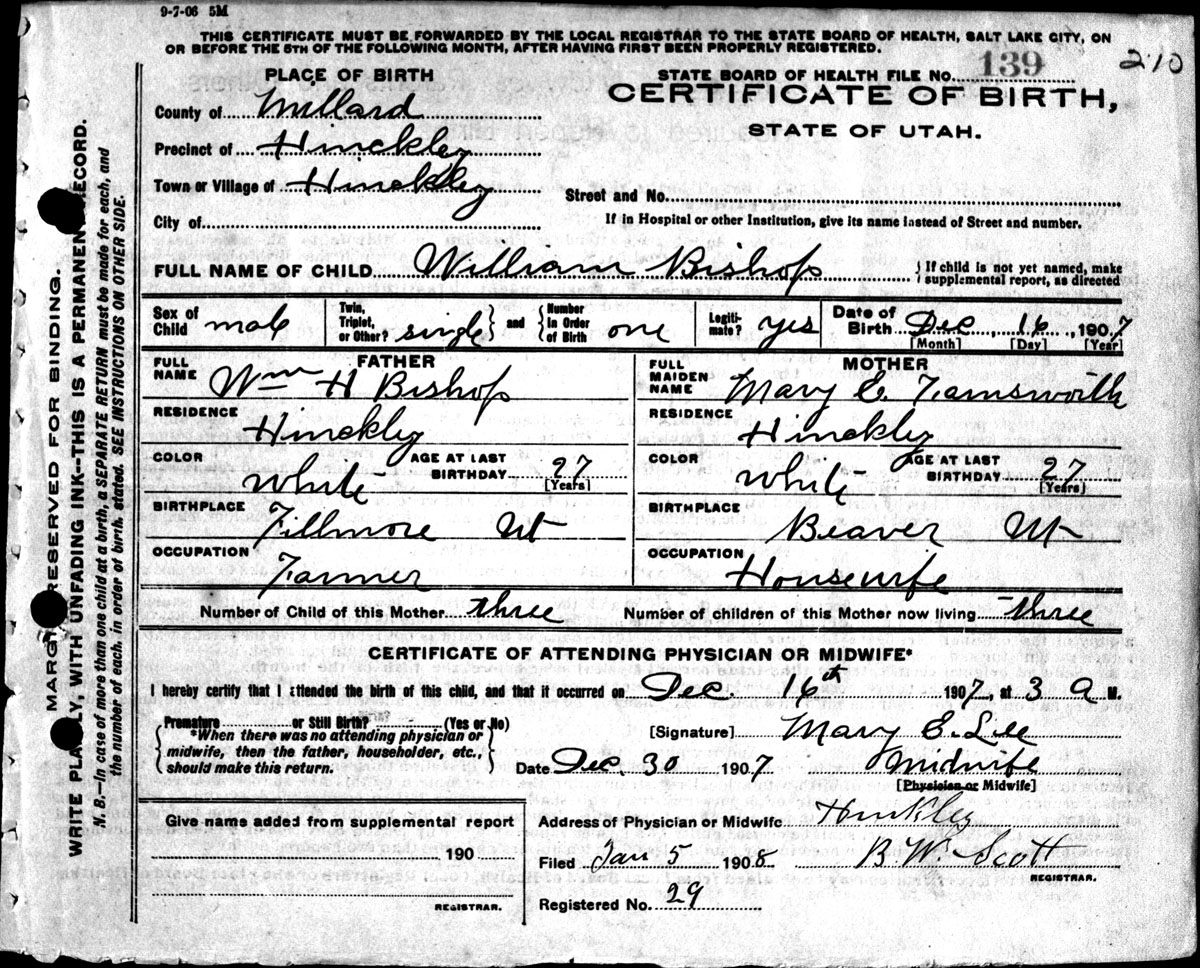 9-7-06 5M
THIS CERTIFICATE MUST BE FORWARDED BY THE LOCAL REGISTRAR TO THE STATE BOARD OF HEALTH, SALT LAKE CITY, ON
OR BEFORE THE 5TH OF THE FOLLOWING MONTH, AFTER HAVING FIRST BEEN PROPERLY REGISTERED.
210
PLACE OF BIRTH
STATE BOARD OF HEALTH FILE NO. 139
CERTIFICATE OF BIRTH,
STATE OF UTAH.
County of Millard
Precinct of Hinckley
Town or Village of Hinckley
Street and No.
City of
If in Hospital or other Institution, give its name instead of Street and number.
FULL NAME OF CHILD William Bishop
{ If child is not yet named, make
supplemental report, as directed
Sex of Child male
Twin, Triplet, or Other? single } and { Number In Order of Birth one
Legitimate? yes
Date of Birth Dec 16, 1907
[Month] [Day] [Year]
FATHER
FULL NAME Wm H Bishop
RESIDENCE
Hinckley
COLOR White
AGE AT LAST BIRTHDAY 27
[Years]
BIRTHPLACE
Fillmore Ut
OCCUPATION
Farmer
MOTHER
FULL MAIDEN NAME Mary E. Farnsworth
RESIDENCE
Hinckley
COLOR White
AGE AT LAST BIRTHDAY 27
[Years]
BIRTHPLACE
Beaver Ut
OCCUPATION
Housewife
Number of Child of this Mother three
Number of children of this Mother now living three
CERTIFICATE OF ATTENDING PHYSICIAN OR MIDWIFE*
I hereby certify that I attended the birth of this child, and that it occurred on Dec. 16th 1907, at 3 a M.
Premature or Still Birth? (Yes or No)
{ *When there was no attending physician or
midwife, then the father, householder, etc.,
should make this return. }
[Signature] Mary E. Lee
Date Dec. 30 1907
Midwife
[Physician or Midwife]
Give name added from supplemental report
190
REGISTRAR.
Address of Physician or Midwife Hinckley
Filed Jan 5 1908
B W. Scott
REGISTRAR.
Registered No. 29
MARGIN RESERVED FOR BINDING.
WRITE PLAINLY, WITH UNFADING INK--THIS IS A PERMANENT RECORD.
N. B.--In case of more than one child at a birth, a SEPARATE RETURN must be made for each, and
the number of each, in order of birth, stated. SEE INSTRUCTIONS ON OTHER SIDE.